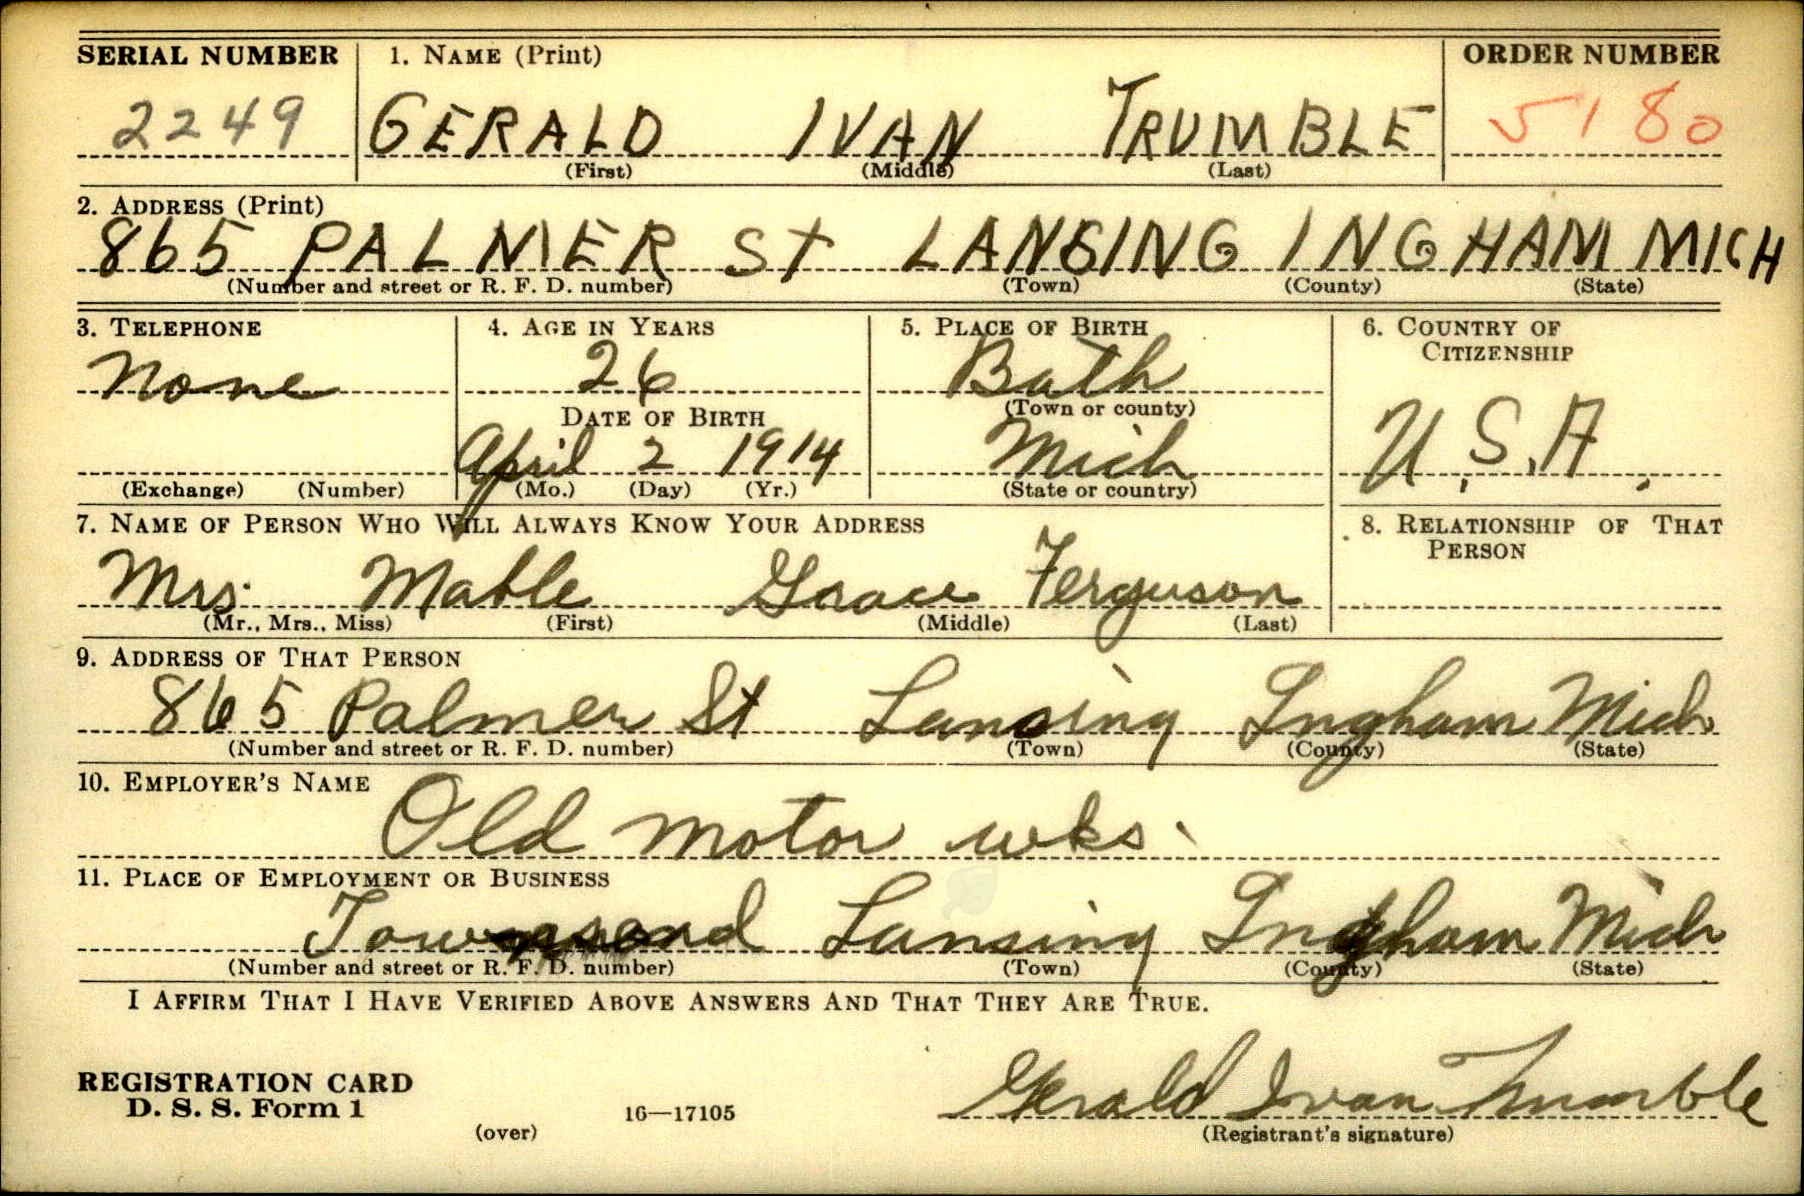 SERIAL NUMBER 1. NAME (Print) ORDER NUMBER
2249 GERALD IVAN TRUMBLE 5180
(First) (Middle) (Last)
2. ADDRESS (Print)
865 PALMER ST LANSING INGHAM MICH
(Number and street or R. F. D. number) (Town) (County) (State)
3. TELEPHONE 4. AGE IN YEARS 5. PLACE OF BIRTH 6. COUNTRY OF
CITIZENSHIP
None 26 Bath
(Town or county)
DATE OF BIRTH
April 2 1914 Mich U.S.A.
(Exchange) (Number) (Mo.) (Day) (Yr.) (State or country)
7. NAME OF PERSON WHO WILL ALWAYS KNOW YOUR ADDRESS 8. RELATIONSHIP OF THAT
PERSON
Mrs. Mable Grace Ferguson
(Mr., Mrs., Miss) (First) (Middle) (Last)
9. ADDRESS OF THAT PERSON
865 Palmer St Lansing Ingham Mich
(Number and street or R. F. D. number) (Town) (County) (State)
10. EMPLOYER'S NAME
Old motor wks.
11. PLACE OF EMPLOYMENT OR BUSINESS
Townsend Lansing Ingham Mich
(Number and street or R. F. D. number) (Town) (County) (State)
I AFFIRM THAT I HAVE VERIFIED ABOVE ANSWERS AND THAT THEY ARE TRUE.
REGISTRATION CARD
D. S. S. Form 1 16—17105 Gerald Ivan Trumble
(over) (Registrant's signature)